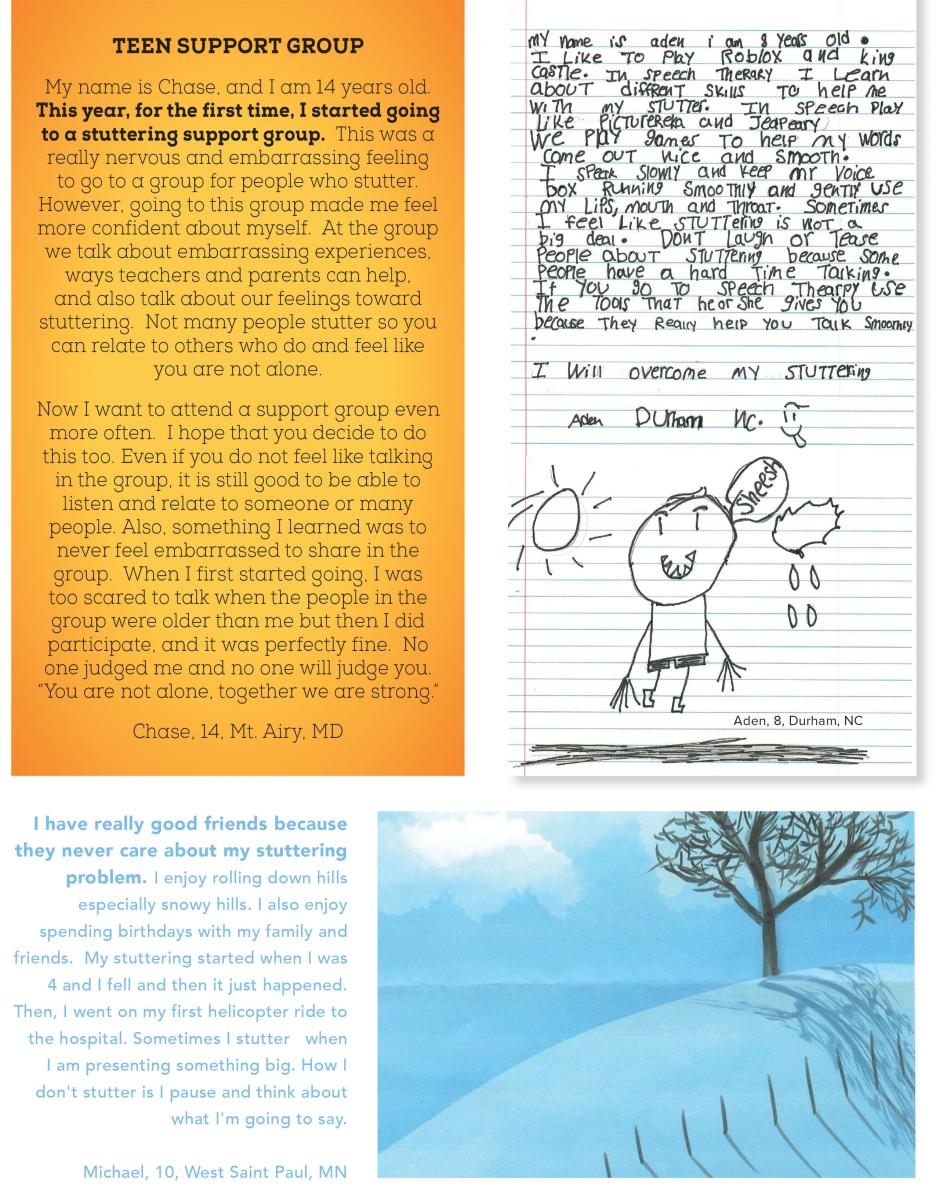 TEEN SUPPORT GROUP
My name is Chase, and I am 14 years old.
This year, for the first time, I started going
to a stuttering support group. This was a
really nervous and embarrassing feeling
to go to a group for people who stutter.
However, going to this group made me feel
more confident about myself. At the group
we talk about embarrassing experiences,
ways teachers and parents can help,
and also talk about our feelings toward
stuttering. Not many people stutter so you
can relate to others who do and feel like
you are not alone.
Now I want to attend a support group even
more often. I hope that you decide to do
this too. Even if you do not feel like talking
in the group, it is still good to be able to
listen and relate to someone or many
people. Also, something I learned was to
never feel embarrassed to share in the
group. When I first started going, I was
too scared to talk when the people in the
group were older than me but then I did
participate, and it was perfectly fine. No
one judged me and no one will judge you.
“You are not alone, together we are strong.”
Chase, 14, Mt. Airy, MD
my name is aden i am 8 years old.
I Like To Play Roblox and king
castle. In speech Therapy I Learn
about diffrent skills to help me
with my stutter. In speech play
Like Picturereka and Jeapeary
we play games to help my words
come out nice and smooth.
I speak slowly and keep my voice
box running smoothly and gently use
my Lips, mouth and Throat. Sometimes
I feel Like stuttering is not a
big deal. Dont Laugh or Tease
people about stuttering because some
people have a hard time talking.
If you go to speech Thearpy use
the tools that he or she gives you
because they Really help you Talk smoothly
.
I will overcome my stuttering
Aden Durham NC.
Sheesh
Aden, 8, Durham, NC
I have really good friends because
they never care about my stuttering
problem. I enjoy rolling down hills
especially snowy hills. I also enjoy
spending birthdays with my family and
friends. My stuttering started when I was
4 and I fell and then it just happened.
Then, I went on my first helicopter ride to
the hospital. Sometimes I stutter when
I am presenting something big. How I
don't stutter is I pause and think about
what I'm going to say.
Michael, 10, West Saint Paul, MN